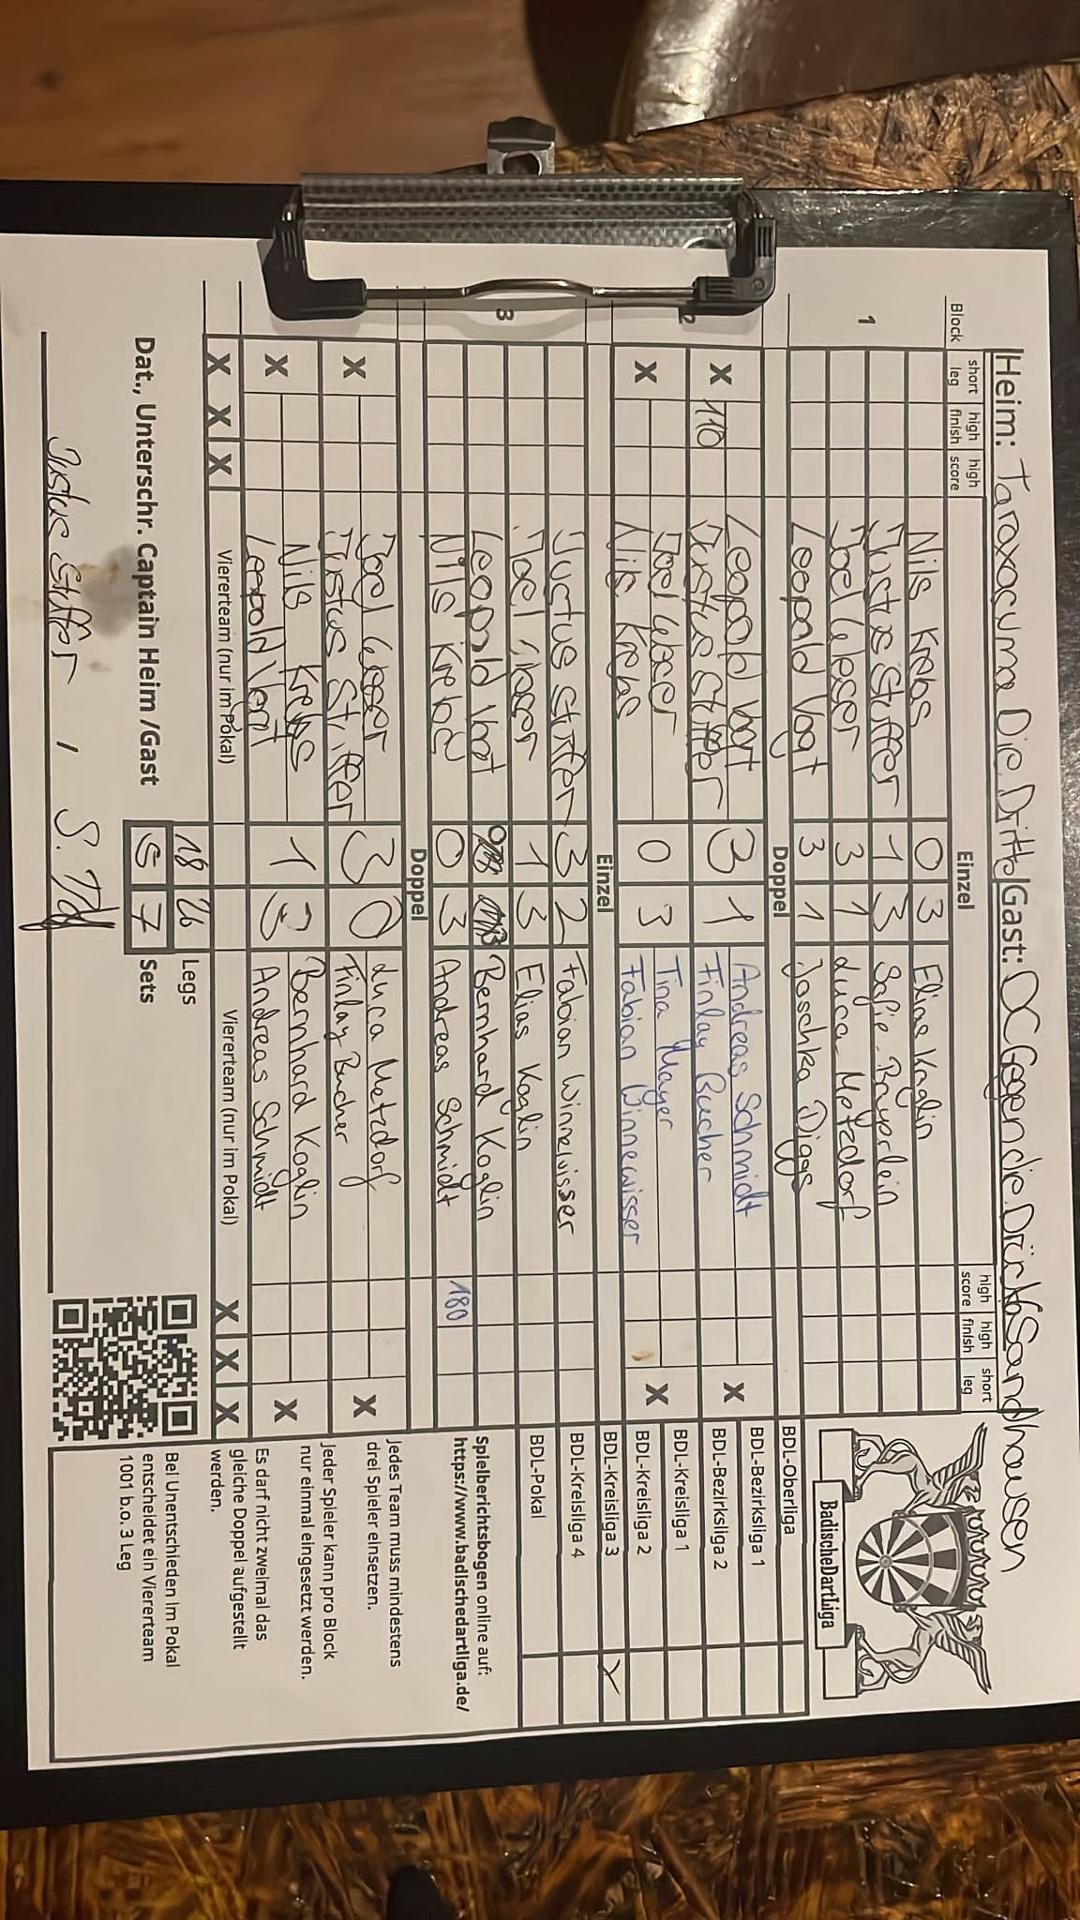 Heim: Taraxacuma Die Dritte Gast: DC Gegen die Drick 6 Sandhausen
Block short leg high finish high score Einzel high score high finish short leg
1 Nils Krebs 0 3 Eline Koglin
Justus Stiffer 1 3 Sofie Bayerlein
Joel Geser 3 1 Luca Metzdorf
Leopold Vogt 3 1 Joschka Diggs
Doppel
2 X 110 Leopold Vogt 3 1 Andreas Schmidt X
Justus Stiffer Finlay Bucher
X Joel Geser 0 3 Tina Mayer X
Nils Krebs Fabian Winnewisser
Einzel
3 Justus Stiffer 3 2 Fabian Winnewisser
Joel Geser 1 3 Elias Koglin
Leopold Vogt Bernhard Koglin
Nils Krebs 0 3 Andreas Schmidt 180
Doppel
X Joel Geser 3 0 Luca Metzdorf X
Justus Stiffer Finlay Bucher
X Nils Krebs 1 3 Bernhard Koglin X
Leopold Vogt Andreas Schmidt
X X X Viererteam (nur im Pokal) Viererteam (nur im Pokal) X X X
18 26 Legs
5 7 Sets
Dat., Unterschr. Captain Heim /Gast
Justus Stiffer / S.
BadischeDartLiga
BDL-Oberliga
BDL-Bezirksliga 1
BDL-Bezirksliga 2
BDL-Kreisliga 1
BDL-Kreisliga 2
BDL-Kreisliga 3 X
BDL-Kreisliga 4
BDL-Pokal
Spielberichtsbogen online auf:
https://www.badischedartliga.de/
Jedes Team muss mindestens
drei Spieler einsetzen.
Jeder Spieler kann pro Block
nur einmal eingesetzt werden.
Es darf nicht zweimal das
gleiche Doppel aufgestellt
werden.
Bei Unentschieden im Pokal
entscheidet ein Viererteam
1001 b.o. 3 Leg